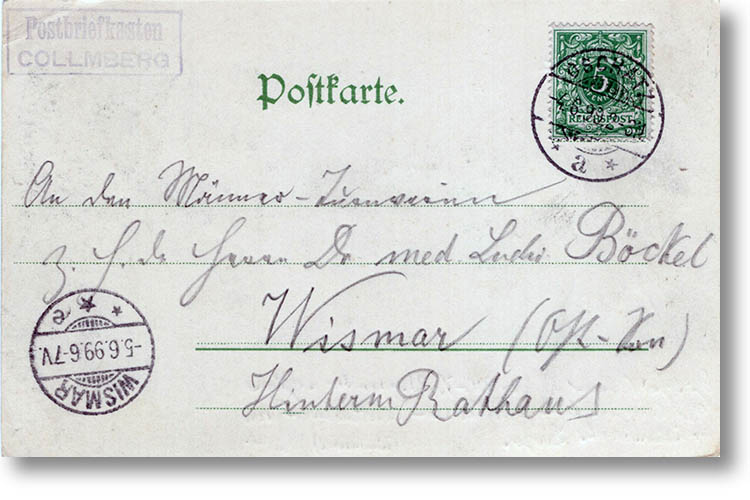 Postbriefkasten
COLLMBERG
Postkarte.
5
REICHSPOST
a
An den Männer-Turnverein
z. H. des Herrn Dr med Böckel
Wismar (Ost-See)
Hinterm Rathaus
WISMAR
-5.6.99.6-7V.
e